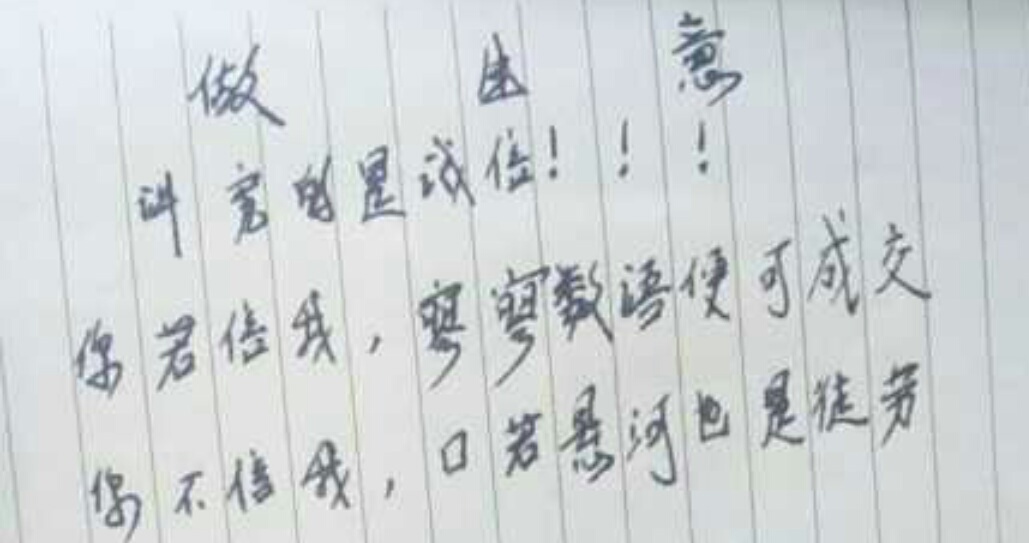 做生意
讲究的是诚信！！！
你若信我，寥寥数语便可成交
你不信我，口若悬河也是徒劳